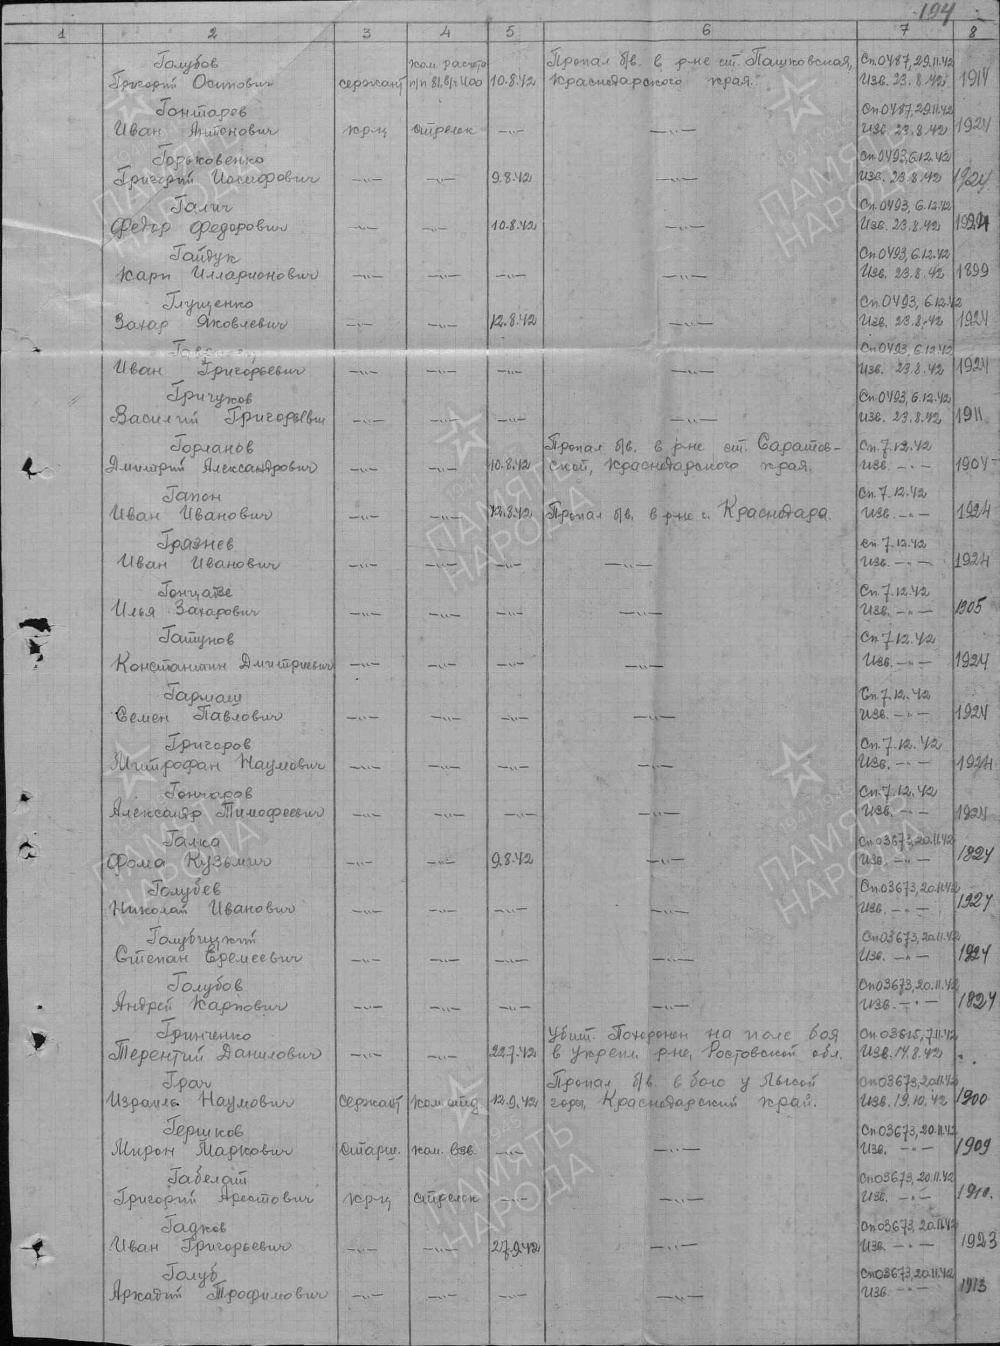 194
1 2 3 4 5 6 7 8
Голубов
Григорий Осипович сержант ком. расчета п/п 81, в/ч 1100 10.8.42 Пропал б/в. в р-не ст. Пашковская, Краснодарского края. Сп 0487, 29.11.42 Изв. 23.8.42 1914
Гонтарев
Иван Антонович кр-ц стрелок —"— —"— Сп 0487, 29.11.42 Изв. 23.8.42 1924
Горьковенко
Григорий Иосифович —"— —"— 9.8.42 —"— Сп 0493, 6.12.42 Изв. 23.8.42 1924
Галич
Федор Федорович —"— —"— 10.8.42 —"— Сп. 0493, 6.12.42 Изв. 23.8.42 1924
Гайдук
Карп Илларионович —"— —"— —"— —"— Сп 0493, 6.12.42 Изв. 23.8.42 1899
Глущенко
Захар Яковлевич —"— —"— 12.8.42 —"— Сп. 0493, 6.12.42 Изв. 23.8.42 1924
Иван Григорьевич —"— —"— —"— —"— Сп 0493, 6.12.42 Изв. 23.8.42 1924
Гричухов
Василий Григорьевич —"— —"— —"— —"— Сп. 0493, 6.12.42 Изв. 23.8.42 1911
Горланов
Дмитрий Александрович —"— —"— 10.8.42 Пропал б/в. в р-не ст. Саратовской, Краснодарского края. Сп. 7.12.42 Изв. —"— 1904
Гапон
Иван Иванович —"— —"— 12.8.42 Пропал б/в. в р-не г. Краснодара. Сп. 7.12.42 Изв. —"— 1924
Грязнев
Иван Иванович —"— —"— —"— —"— Сп 7.12.42 Изв. —"— 1924
Илья Захарович —"— —"— —"— —"— Сп. 7.12.42 Изв. —"— 1905
Гатунов
Константин Дмитриевич —"— —"— —"— —"— Сп 7.12.42 Изв. —"— 1924
Гармаш
Семен Павлович —"— —"— —"— —"— Сп 7.12.42 Изв. —"— 1924
Григоров
Митрофан Наумович —"— —"— —"— —"— Сп. 7.12.42 Изв. —"— 1924
Гончаров
Александр Тимофеевич —"— —"— —"— —"— Сп. 7.12.42 Изв. —"— 1924
Галка
Фома Кузьмич —"— —"— 9.8.42 —"— Сп 03673, 20.11.42 Изв. —"— 1824
Голубев
Николай Иванович —"— —"— —"— —"— Сп. 03673, 20.11.42 Изв. —"— 1924
Голубицкий
Степан Еремеевич —"— —"— —"— —"— Сп 03673, 20.11.42 Изв. —"— 1924
Голубов
Андрей Карпович —"— —"— —"— —"— Сп 03673, 20.11.42 Изв. —"— 1824
Гринченко
Терентий Данилович —"— —"— 22.7.42 Убит. Похоронен на поле боя в укрепл. р-не, Ростовской обл. Сп 03615, 7.11.42 Изв. 14.8.42
Грач
Израиль Наумович сержант ком. отд 12.9.42 Пропал б/в. в бою у Лысой горы, Краснодарский край. Сп 03673, 20.11.42 Изв. 19.10.42 1900
Гершков
Мирон Маркович старш. ком. взв. —"— —"— Сп 03673, 20.11.42 Изв. —"— 1909
Габелат
Григорий Арестович кр-ц стрелок —"— —"— Сп 03673, 20.11.42 Изв. —"— 1910.
Гадков
Иван Григорьевич —"— —"— 27.9.42 —"— Сп 03673, 20.11.42 Изв. —"— 1923
Голуб
Аркадий Трофимович —"— —"— —"— —"— Сп 03673, 20.11.42 Изв. —"— 1913
ПАМЯТЬ
НАРОДА